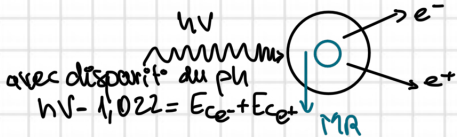 hν
e⁻
avec disparit° du ph
e⁺
hν - 1,022 = Ece⁻ + Ece⁺
MR